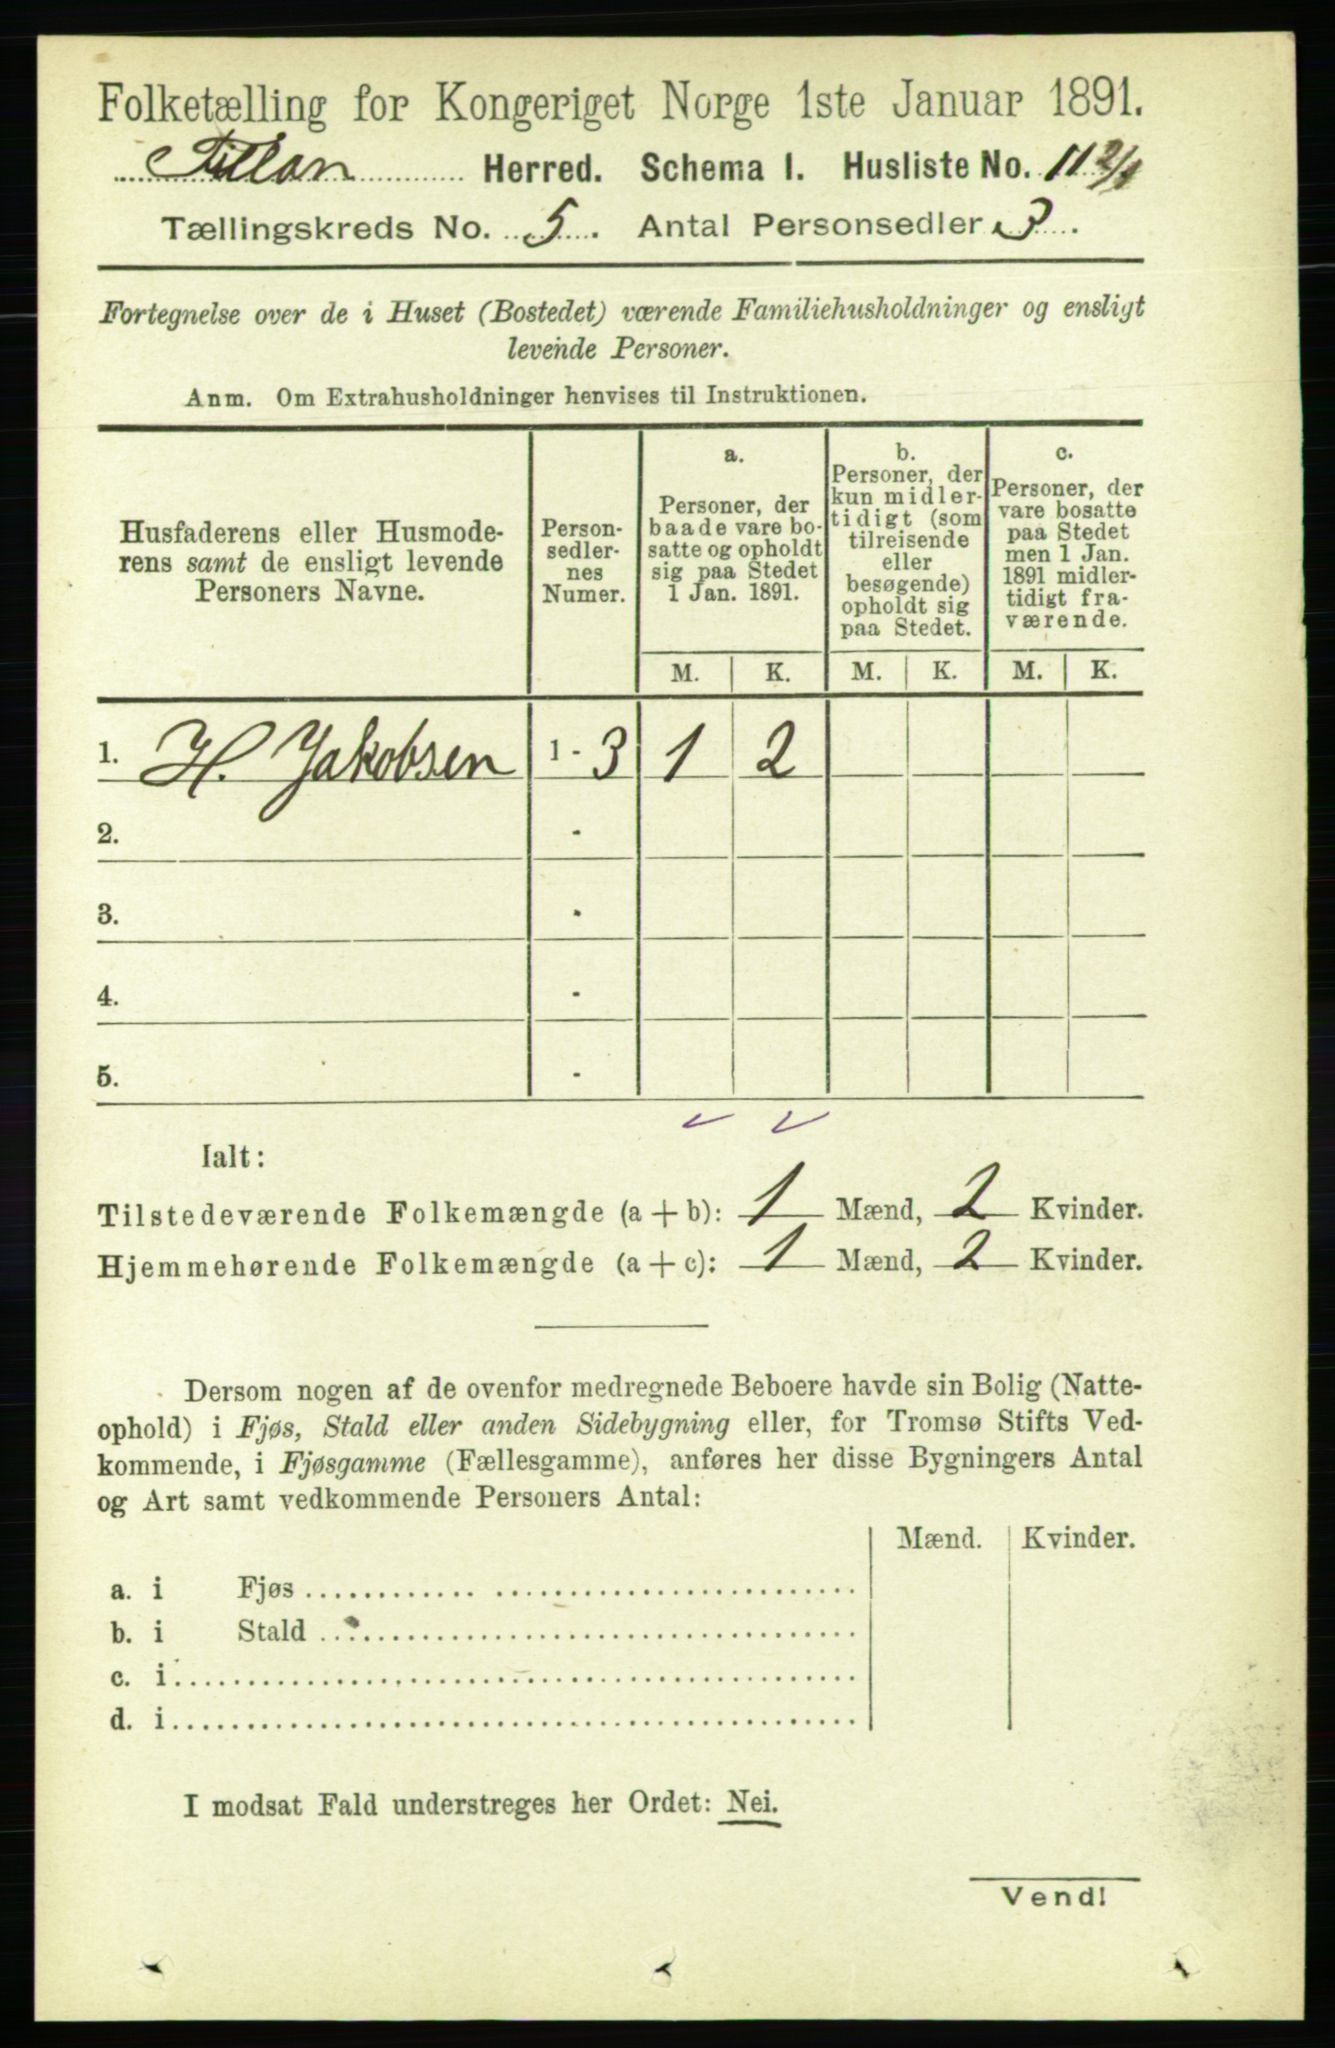 Folketælling for Kongeriget Norge 1ste Januar 1891.
Fillan Herred. Schema I. Husliste No. 11
Tællingskreds No. 5. Antal Personsedler 3.
Fortegnelse over de i Huset (Bostedet) værende Familiehusholdninger og ensligt
levende Personer.
Anm. Om Extrahusholdninger henvises til Instruktionen.
Husfaderens eller Husmode-
rens samt de ensligt levende
Personers Navne.
Person-
sedler-
nes
Numer.
a.
Personer, der
baade vare bo-
satte og opholdt
sig paa Stedet
1 Jan. 1891.
b.
Personer, der
kun midler-
tidigt (som
tilreisende
eller
besøgende)
opholdt sig
paa Stedet.
c.
Personer, der
vare bosatte
paa Stedet
men 1 Jan.
1891 midler-
tidigt fra-
værende.
M. K. M. K. M. K.
1. H. Jakobsen 1 - 3 1 2
2. -
3. -
4. -
5. -
Ialt:
Tilstedeværende Folkemængde (a + b): 1 Mænd, 2 Kvinder.
Hjemmehørende Folkemængde (a + c): 1 Mænd, 2 Kvinder.
Dersom nogen af de ovenfor medregnede Beboere havde sin Bolig (Natte-
ophold) i Fjøs, Stald eller anden Sidebygning eller, for Tromsø Stifts Ved-
kommende, i Fjøsgamme (Fællesgamme), anføres her disse Bygningers Antal
og Art samt vedkommende Personers Antal:
Mænd. Kvinder.
a. i Fjøs
b. i Stald
c. i
d. i
I modsat Fald understreges her Ordet: Nei.
Vend!